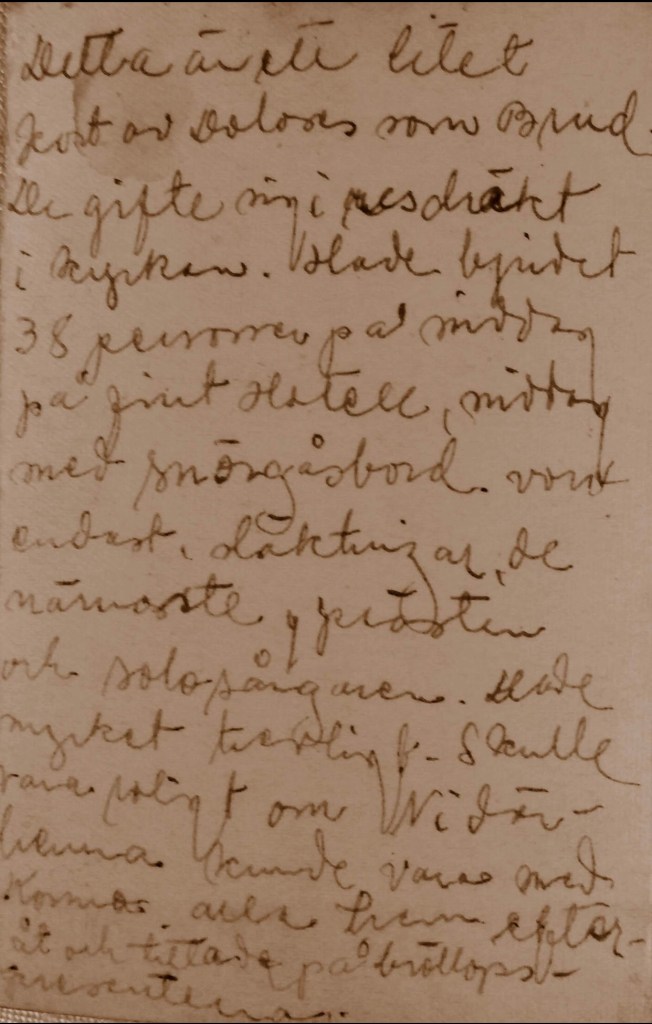 Detta är ett litet
kort av Dolores som Brud.
De gifte sig i resdräkt
i kyrkan. Hade bjudit
38 personer på middag
på fint Hotell, middag
med smörgåsbord. vort
endast släktingar, de
närmaste, prästen
och solosångaren. Hade
mycket trevligt. Skulle
vara roligt om Ni där-
hemma kunde vara med
Komma alla hem efter-
åt och tittade på bröllops-
presenterna.